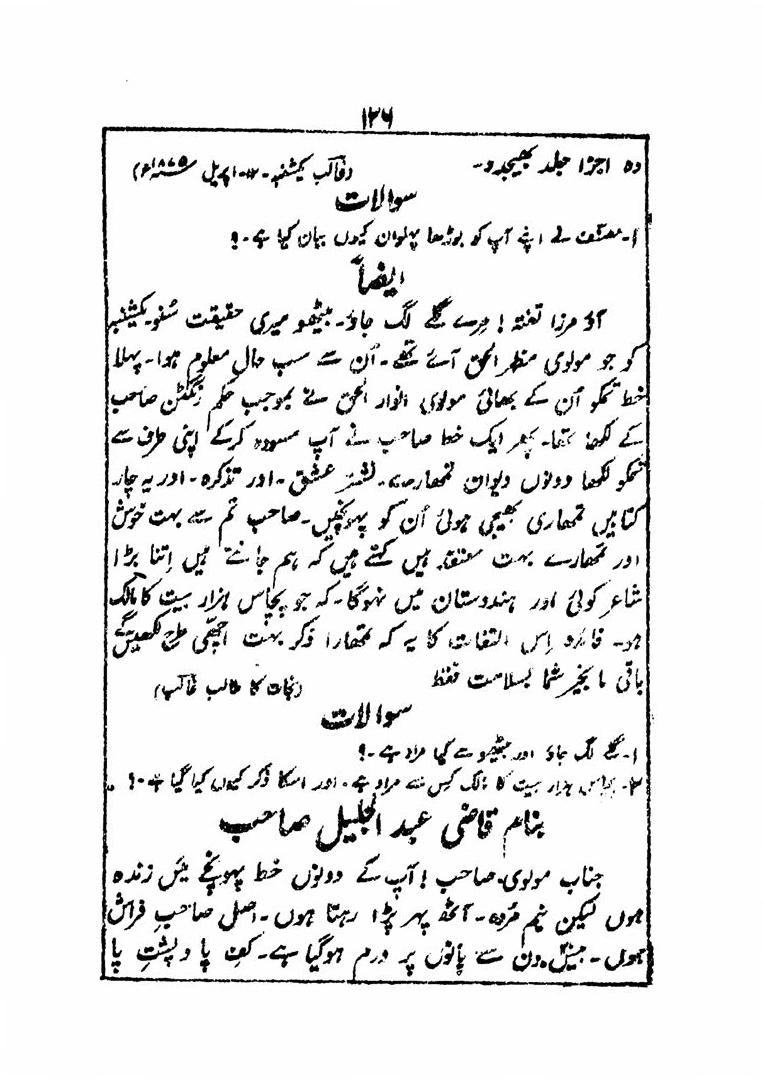 ۱۲۶
وہ اجزا جلد بھیجدو۔ (غالب یکشنبہ ۔ اپریل ۱۸۶۵ء)
سوالات
۱۔ مصنف نے اپنے آپ کو بوڑھا پہلوان کیوں بیان کیا ہے۔؟
ایضاً
آؤ مرزا تفتہ! مرے گلے لگ جاؤ۔ بیٹھو میری حقیقت سُنو۔ یکشنبہ
کو جو مولوی مظہر الحق آئے تھے۔ اُن سے سب حال معلوم ہوا۔ پہلا
خط تمکو اُن کے بھائی مولوی انوار الحق نے بموجب حکم رنگٹن صاحب
کے لکھا تھا۔ پھر ایک خط صاحب نے آپ مسودہ کرکے اپنی طرف سے
تمکو لکھا دونوں دیوان تمھارے۔ نشتر عشق۔ اور تذکرہ۔ اور یہ چار
کتابیں تمھاری بھیجی ہوئی اُن کو پہونچیں۔ صاحب تم سے بہت خوش
اور تمھارے بہت معتقد ہیں کہتے ہیں کہ ہم جانتے ہیں اِتنا بڑا
شاعر کوئی اور ہندوستان میں نہوگا۔ کہ جو پچاس ہزار بیت کا مالک
ہو۔ فائدہ اِس التفات کا یہ کہ تمھارا ذکر بہت اچھی طرح لکھینگے
باقی ما بخیر شما بسلامت فقط (نجات کا طالب غالب)
سوالات
۱۔ گلے لگ جاؤ اور بیٹھو سے کیا مراد ہے۔؟
۲۔ پچاس ہزار بیت کا مالک کس سے مراد ہے۔ اور اسکا ذکر کیوں کیا گیا ہے۔؟
بنام قاضی عبد الجلیل صاحب
جناب مولوی صاحب! آپ کے دونوں خط پہونچے میں زندہ
ہوں لیکن نیم مُردہ۔ آٹھ پہر پڑا رہتا ہوں۔ اصل صاحبِ فراش
ہوں۔ بیس دن سے پانوں پر ورم ہوگیا ہے۔ کفِ پا و پشتِ پا